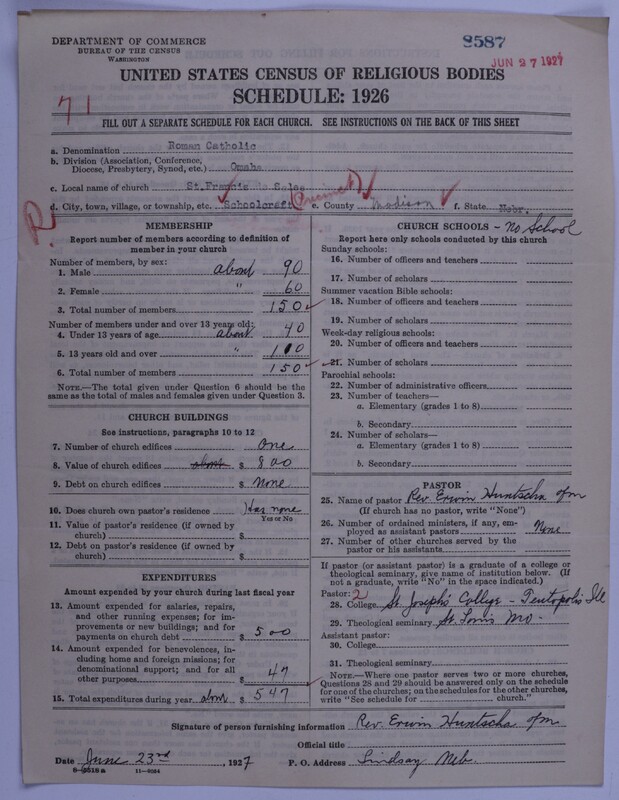 DEPARTMENT OF COMMERCE
BUREAU OF THE CENSUS
WASHINGTON
8587
JUN 27 1927
UNITED STATES CENSUS OF RELIGIOUS BODIES
SCHEDULE: 1926
71
FILL OUT A SEPARATE SCHEDULE FOR EACH CHURCH. SEE INSTRUCTIONS ON THE BACK OF THIS SHEET
a. Denomination Roman Catholic
b. Division (Association, Conference, Diocese, Presbytery, Synod, etc.) Omaha
c. Local name of church St. Francis de Sales
d. City, town, village, or township, etc. Schoolcraft Precinct e. County Madison f. State Nebr.
R
MEMBERSHIP
Report number of members according to definition of member in your church
Number of members, by sex:
1. Male about 90
2. Female " 60
3. Total number of members 150
Number of members under and over 13 years old:
4. Under 13 years of age about 40
5. 13 years old and over " 110
6. Total number of members 150
NOTE.—The total given under Question 6 should be the same as the total of males and females given under Question 3.
CHURCH BUILDINGS
See instructions, paragraphs 10 to 12
7. Number of church edifices One
8. Value of church edifices about $ 800
9. Debt on church edifices $ None
10. Does church own pastor's residence Has none
Yes or No
11. Value of pastor's residence (if owned by church) $
12. Debt on pastor's residence (if owned by church) $
EXPENDITURES
Amount expended by your church during last fiscal year
13. Amount expended for salaries, repairs, and other running expenses; for improvements or new buildings; and for payments on church debt $ 500
14. Amount expended for benevolences, including home and foreign missions; for denominational support; and for all other purposes $ 47
15. Total expenditures during year about $ 547
CHURCH SCHOOLS - No School
Report here only schools conducted by this church
Sunday schools:
16. Number of officers and teachers
17. Number of scholars
Summer vacation Bible schools:
18. Number of officers and teachers
19. Number of scholars
Week-day religious schools:
20. Number of officers and teachers
21. Number of scholars
Parochial schools:
22. Number of administrative officers
23. Number of teachers—
a. Elementary (grades 1 to 8)
b. Secondary
24. Number of scholars—
a. Elementary (grades 1 to 8)
b. Secondary
PASTOR
25. Name of pastor Rev. Erwin Huntscha ofm
(If church has no pastor, write "None")
26. Number of ordained ministers, if any, employed as assistant pastors None
27. Number of other churches served by the pastor or his assistants
If pastor (or assistant pastor) is a graduate of a college or theological seminary, give name of institution below. (If not a graduate, write "No" in the space indicated.)
Pastor: 2
28. College St. Joseph's College - Teutopolis Ill
29. Theological seminary St. Louis Mo.
Assistant pastor:
30. College
31. Theological seminary
NOTE.—Where one pastor serves two or more churches, Questions 28 and 29 should be answered only on the schedule for one of the churches; on the schedules for the other churches, write "See schedule for church."
Signature of person furnishing information Rev. Erwin Huntscha ofm
Official title
Date June 23rd, 1927 P. O. Address Lindsay Neb.
8-2518a 11-9084